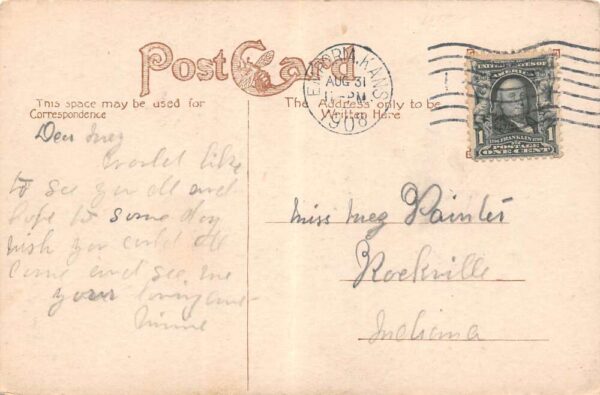 Post Card
This space may be used for
Correspondence
The Address only to be
Written Here
EMPORIA, KANS.
AUG 31
PM
1908
UNITED STATES OF
AMERICA
FRANKLIN
1 POSTAGE 1
ONE CENT
Dear Meg
Would like
to see you all and
hope to some day
wish you could all
come and see me
your loving
Minnie
Miss Meg Painter
Rockville
Indiana